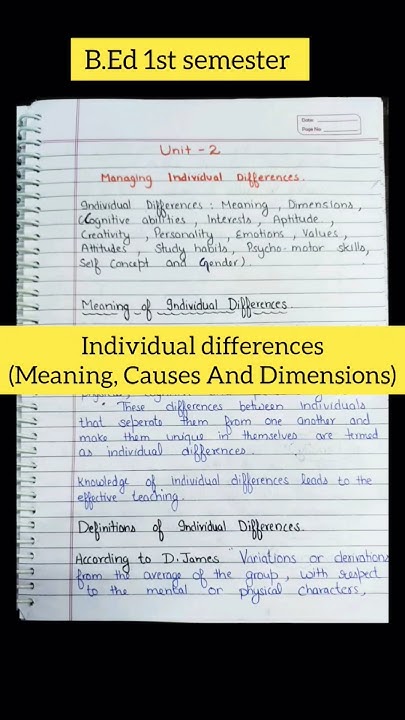 B.Ed 1st semester
Date:
Page No:
Unit - 2
Managing Individual Differences.
Individual Differences : Meaning, Dimensions,
(Cognitive abilities, Interests, Aptitude,
Creativity, Personality, Emotions, Values,
Attitudes, Study habits, Psycho-motor skills,
Self Concept and Gender).
Meaning of Individual Differences.
Individual differences
(Meaning, Causes And Dimensions)
• These differences between individuals
that seperate them from one another and
make them unique in themselves are termed
as individual differences.
Knowledge of individual differences leads to the
effective teaching.
Definitions of Individual Differences.
According to D. James "Variations or derivations
from the average of the group, with respect
to the mental or physical characters,